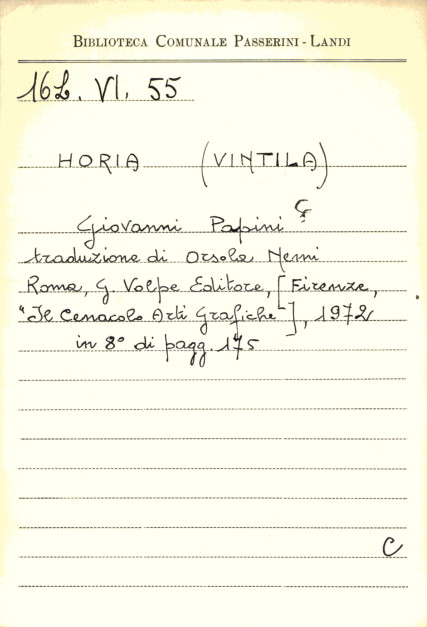 BIBLIOTECA COMUNALE PASSERINI - LANDI
16L. VI. 55
HORIA (VINTILA)
Giovanni Papini Ç
traduzione di Orsola Nemi
Roma, G. Volpe Editore, [Firenze,
"Il Cenacolo Arti Grafiche"], 1972
in 8° di pagg. 175
C